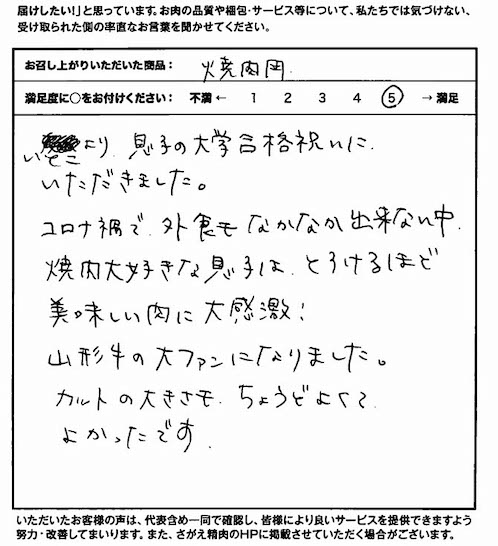 届けしたい!」と思っています。お肉の品質や梱包・サービス等について、私たちでは気づけない、
受け取られた側の率直なお言葉を聞かせてください。
お召し上がりいただいた商品： 焼肉用
満足度に○をお付けください： 不満 ← 1 2 3 4 5 → 満足
いとこより、息子の大学合格祝いに
いただきました。
コロナ禍で、外食もなかなか出来ない中、
焼肉大好きな息子は、とろけるほど
美味しい肉に大感激!
山形牛の大ファンになりました。
カットの大きさも、ちょうどよくて、
よかったです。
いただいたお客様の声は、代表含め一同で確認し、皆様により良いサービスを提供できますよう
努力・改善してまいります。また、さがえ精肉のHPに掲載させていただく場合がございます。